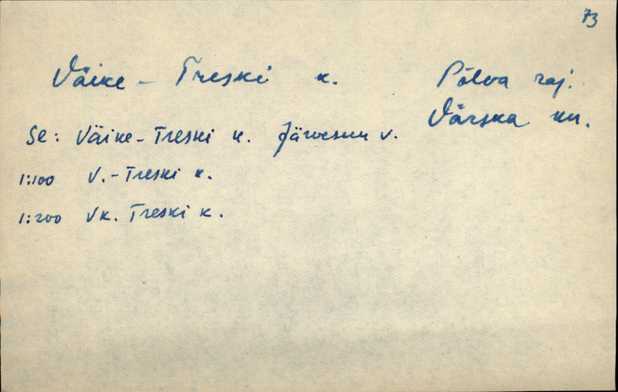 73
Väike - Treski k. Põlva raj.
Värska kn.
Se: Väike-Treski k. Järvesuu v.
1:100 V.-Treski k.
1:200 Vk. Treski k.